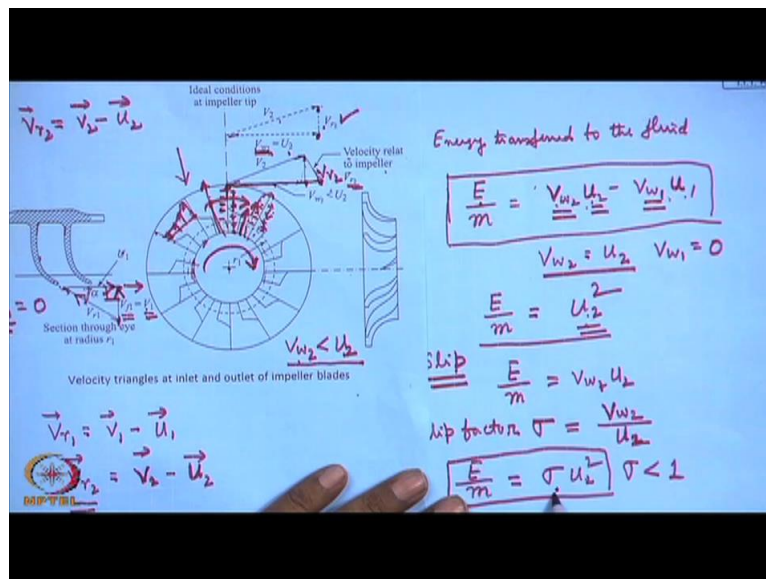 Ideal conditions
at impeller tip
V⃗r2 = V⃗2 - U⃗2
V2
Vr2
Vw2 = U2
V2
Velocity relat
to impeller
Vr2
Vw2 < U2
r1
U1
α
Vf1 = V1
Vr1
= 0
Section through eye
at radius r1
Vw2 < U2
Velocity triangles at inlet and outlet of impeller blades
V⃗r1 = V⃗1 - U⃗1
r2 = V⃗2 - U⃗2
NPTEL
Energy transferred to the fluid
E/m = Vw2 U2 - Vw1 U1
Vw2 = U2 Vw1 = 0
E/m = U2²
Slip E/m = Vw2 U2
lip factor σ = Vw2/U2
E/m = σ U2² σ < 1